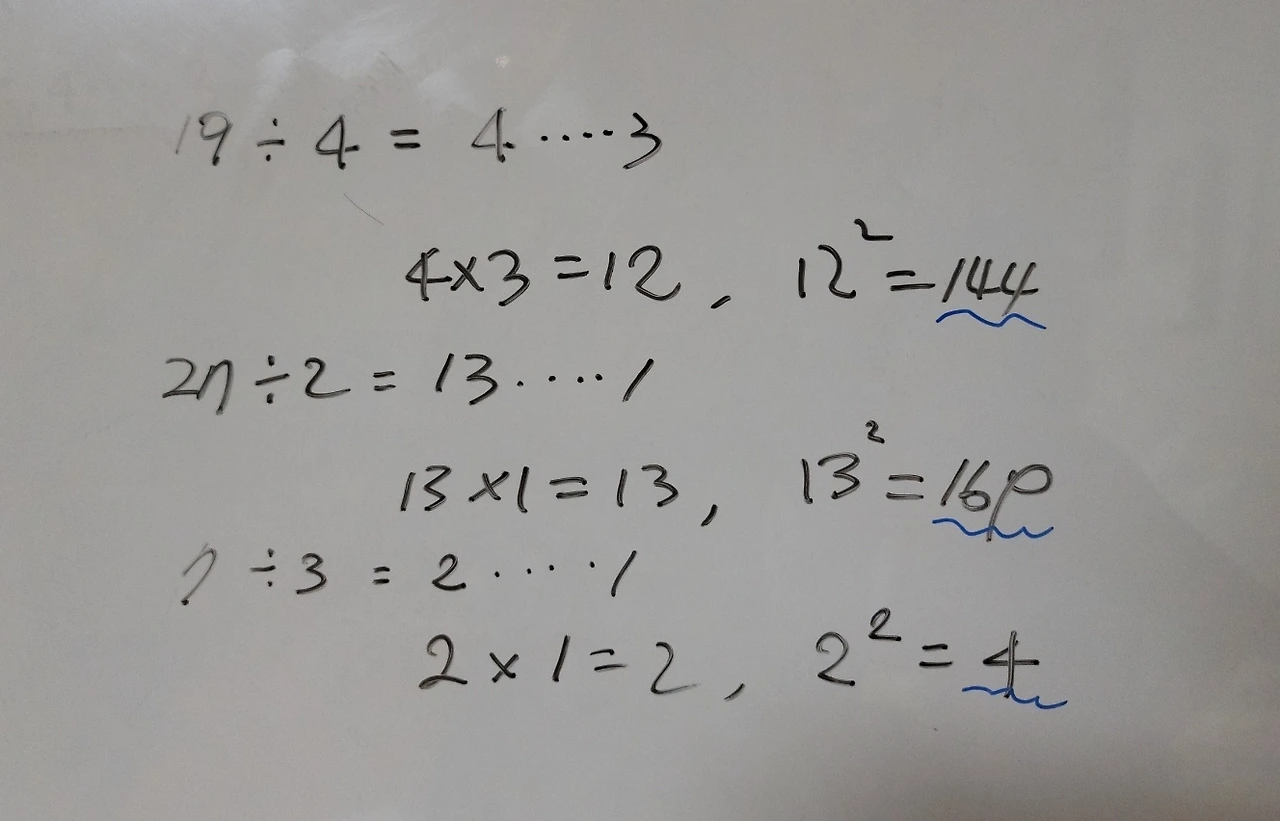 19 ÷ 4 = 4 ···· 3
4 × 3 = 12 , 12² = 144
27 ÷ 2 = 13 ···· 1
13 × 1 = 13 , 13² = 169
7 ÷ 3 = 2 ···· 1
2 × 1 = 2 , 2² = 4